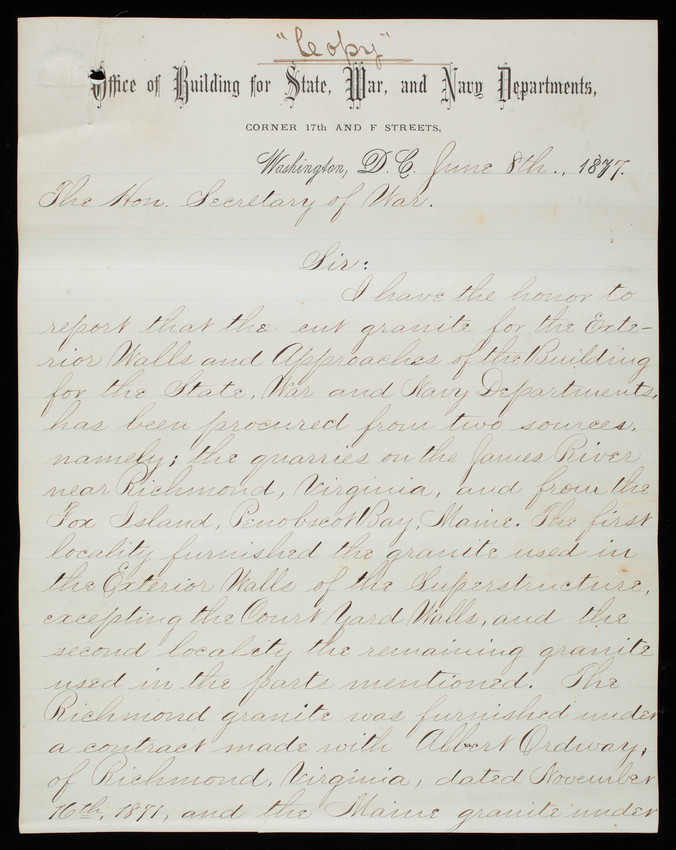 "Copy"
Office of Building for State, War, and Navy Departments,
CORNER 17th AND F STREETS,
Washington, D.C. June 8th., 1877.
The Hon. Secretary of War.
Sir:
I have the honor to
report that the cut granite for the Exte-
rior Walls and Approaches of the Building
for the State, War and Navy Departments,
has been procured from two sources,
namely; the quarries on the James River
near Richmond, Virginia, and from the
Fox Island, Penobscot Bay, Maine. The first
locality furnished the granite used in
the Exterior Walls of the Superstructure,
excepting the Court Yard Walls, and the
second locality the remaining granite
used in the parts mentioned. The
Richmond granite was furnished under
a contract made with Albert Ordway,
of Richmond, Virginia, dated November
16th, 1871, and the Maine granite under